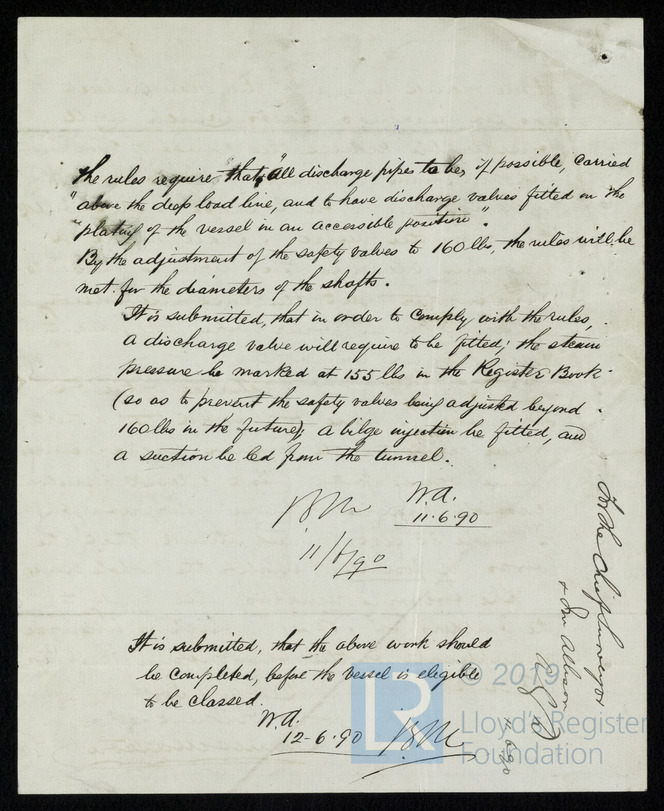 The rules require "that, "all discharge pipes to be, if possible, carried
"above the deep load line, and to have discharge valves fitted on the
"plating of the vessel in an accessible position".
By the adjustment of the safety valves to 160 lbs, the rules will be
met for the diameters of the shafts.
It is submitted, that in order to comply with the rules,
a discharge valve will require to be fitted; the steam
pressure be marked at 155 lbs in the Register Book
(so as to prevent the safety valves being adjusted beyond
160 lbs in the future); a bilge injection be fitted, and
a suction be led from the tunnel.
W.A.
11.6.90
11/6/90
It is submitted, that the above work should
be completed, before the vessel is eligible
to be classed.
W.A.
12-6-90
For the Chief Surveyor
& Mr Allison
11.6.90
© 2019
LR
Lloyd's Register
Foundation